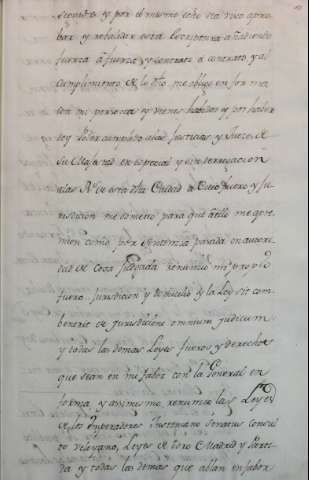 y por el mismo echo sea visto apro
bar y rebalidar esta Escriptura añadiendo
fuerza á fuerza y contrato á contrato y al
Cumplimiento de lo dho me obligo en for ma
con mi persona y vienes havidos y por haber
doy poder cumplido alas Justicias y Jueces de
Su Magestad en especial y sin derrogacion
alas de esta dha Ciudad a Cuio fuero y Ju
risdicion me someto para que á ello me apre
mien como por Sentencia pasada en autori
dad de Cosa Juzgada renuncio mi propio
fuero Jurisdicion y domicilio y la Ley sit com
benerit de jurisditione omnium judicum
y todas las demas Leyes fueros y derechos
que sean en mi fabor con la General en
forma y asimismo renuncio las Leyes
de los Emperadores Justiniano Senatus consul
to Veleyano, Leyes de Toro Madrid y Parti
da y todas las demas que ablan en fabor